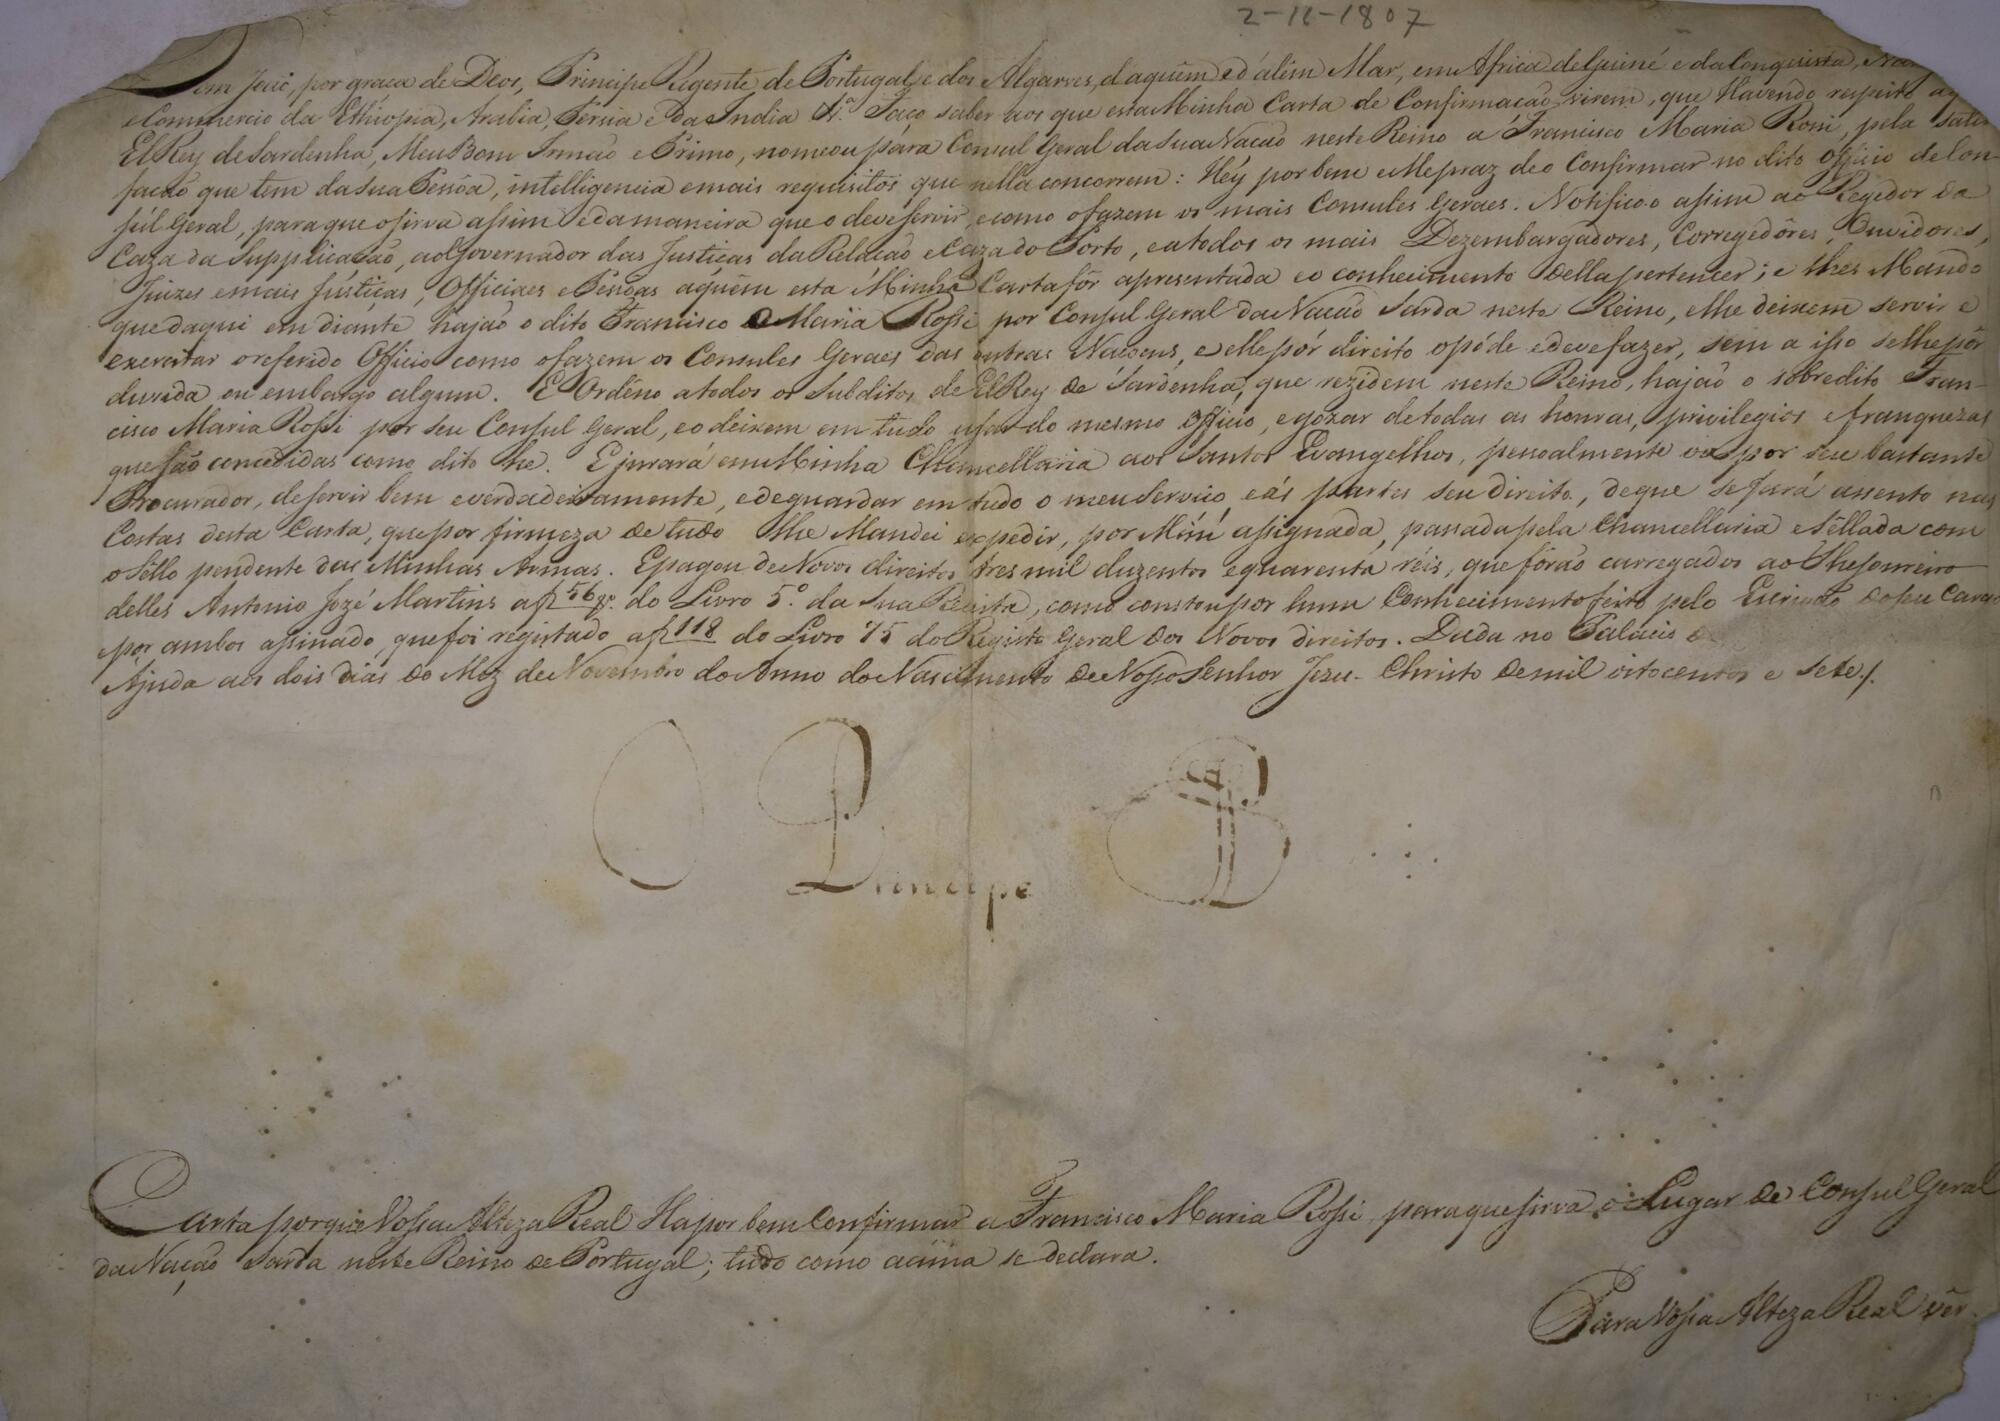 2-11-1807
Dom João, por graca de Deos, Principe Regente de Portugal, e dos Algarves, daquém, e d'além Mar, em Africa de Guiné e da Conquista,
e Commercio da Ethiopia, Arabia, Persia e Da India &.ª Faço saber aos que esta Minha Carta de Confirmacão virem, que Havendo respeito a
El Rey de Sardenha, Meu Bom Irmão e Primo, nomeou pára Consul Geral da sua Nacão neste Reino a Francisco Maria Rossi, pela satis-
facaõ que tem da sua Pessôa, intelligencia e mais requisitos que nella concorrem: Héy por bem e Me praz de o Confirmar no dito officio de Con-
súl Geral, para que o sirva assim e da maneira que o deve servir, e como o fazem os mais Consules Geraes. Notifico-o assim ao Regedor da
Caza da Supplicasão, ao Governador das Justiças da Relacão e Caza do Porto, e a todos os mais Dezembargadores, Corregedôres, Ouvidores,
Juizes e mais Jústiças, Officiaes e Pessôas aquêm esta Minha Carta fôr apresentada e o conhecimento della pertencer; e lhes Mando
que daqui em diánte hajaõ o dito Francisco Maria Rossi por Consul Geral da Nacaõ Sarda neste Reino, e lhe deixem servir e
exercitar o referido Officio como o fazem os Consules Geraes das outras Nacoens, e elle pór direito o póde e deve fazer, sem a isso se lhe pôr
duvida ou embargo algum. E Ordêno a todos os Subditos de El Rey de Sardenha, que rezidem neste Reino, hajaõ o sobredito Fran-
cisco Maria Rossi por seu Consul Geral, e o deixem em tudo usar do mesmo officio, e gozar de todas as honras, privilegios e franquezas
que saõ concedidas como dito he. E jurará em Minha Chancellaria aos Santos Evangelhos, pessoalmente ou por seu bastante
Procurador, de servir bem e verdadeiramente, e de guardar em tudo o meu Servico, e ás partes seu direito, de que se fará assento nas
Costas desta Carta, que por firmeza de tudo lhe Mandei expedir, por Mim assignada, passada pela Chancellaria e Sêllada com
o Sêllo pendente das Minhas Armas. E pagou de Novos direitos tres mil duzentos e quarenta réis, que fôraõ carregados ao Thesoureiro
delles Antonio Jozé Martins a f 56 v.º do Livro 5.º da Sua Receita, como constou por hum Conhecimento feito pelo Escrivão do seu Cargo
por ambos assinado, que foi registado a f 118 do Livro 75 do Registo Geral dos Novos direitos. Dada no Palacio
Ajuda aos dois dias do Mez de Novembro do Anno do Nascimento de Nosso Senhor Jezu-Christo de mil oitocentos e sete/.
O Principe
Carta por que Vossa Alteza Real Ha por bem Confirmar a Francisco Maria Rossi para que sirva o Lugar de Consul Geral
da Nação Sarda neste Reino de Portugal; tudo como acima se declara.
Para Vossa Alteza Real vêr.